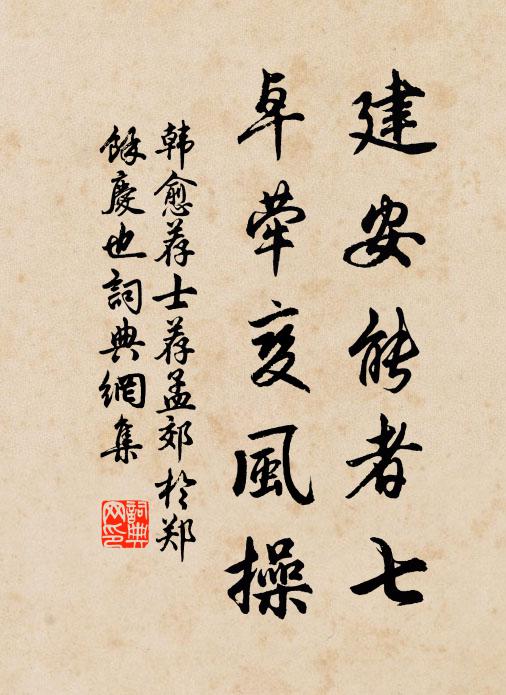 建安能者七
卓荦变風操
韩愈荐士荐孟郊於郑
馀慶也詞典網集
詞典网印